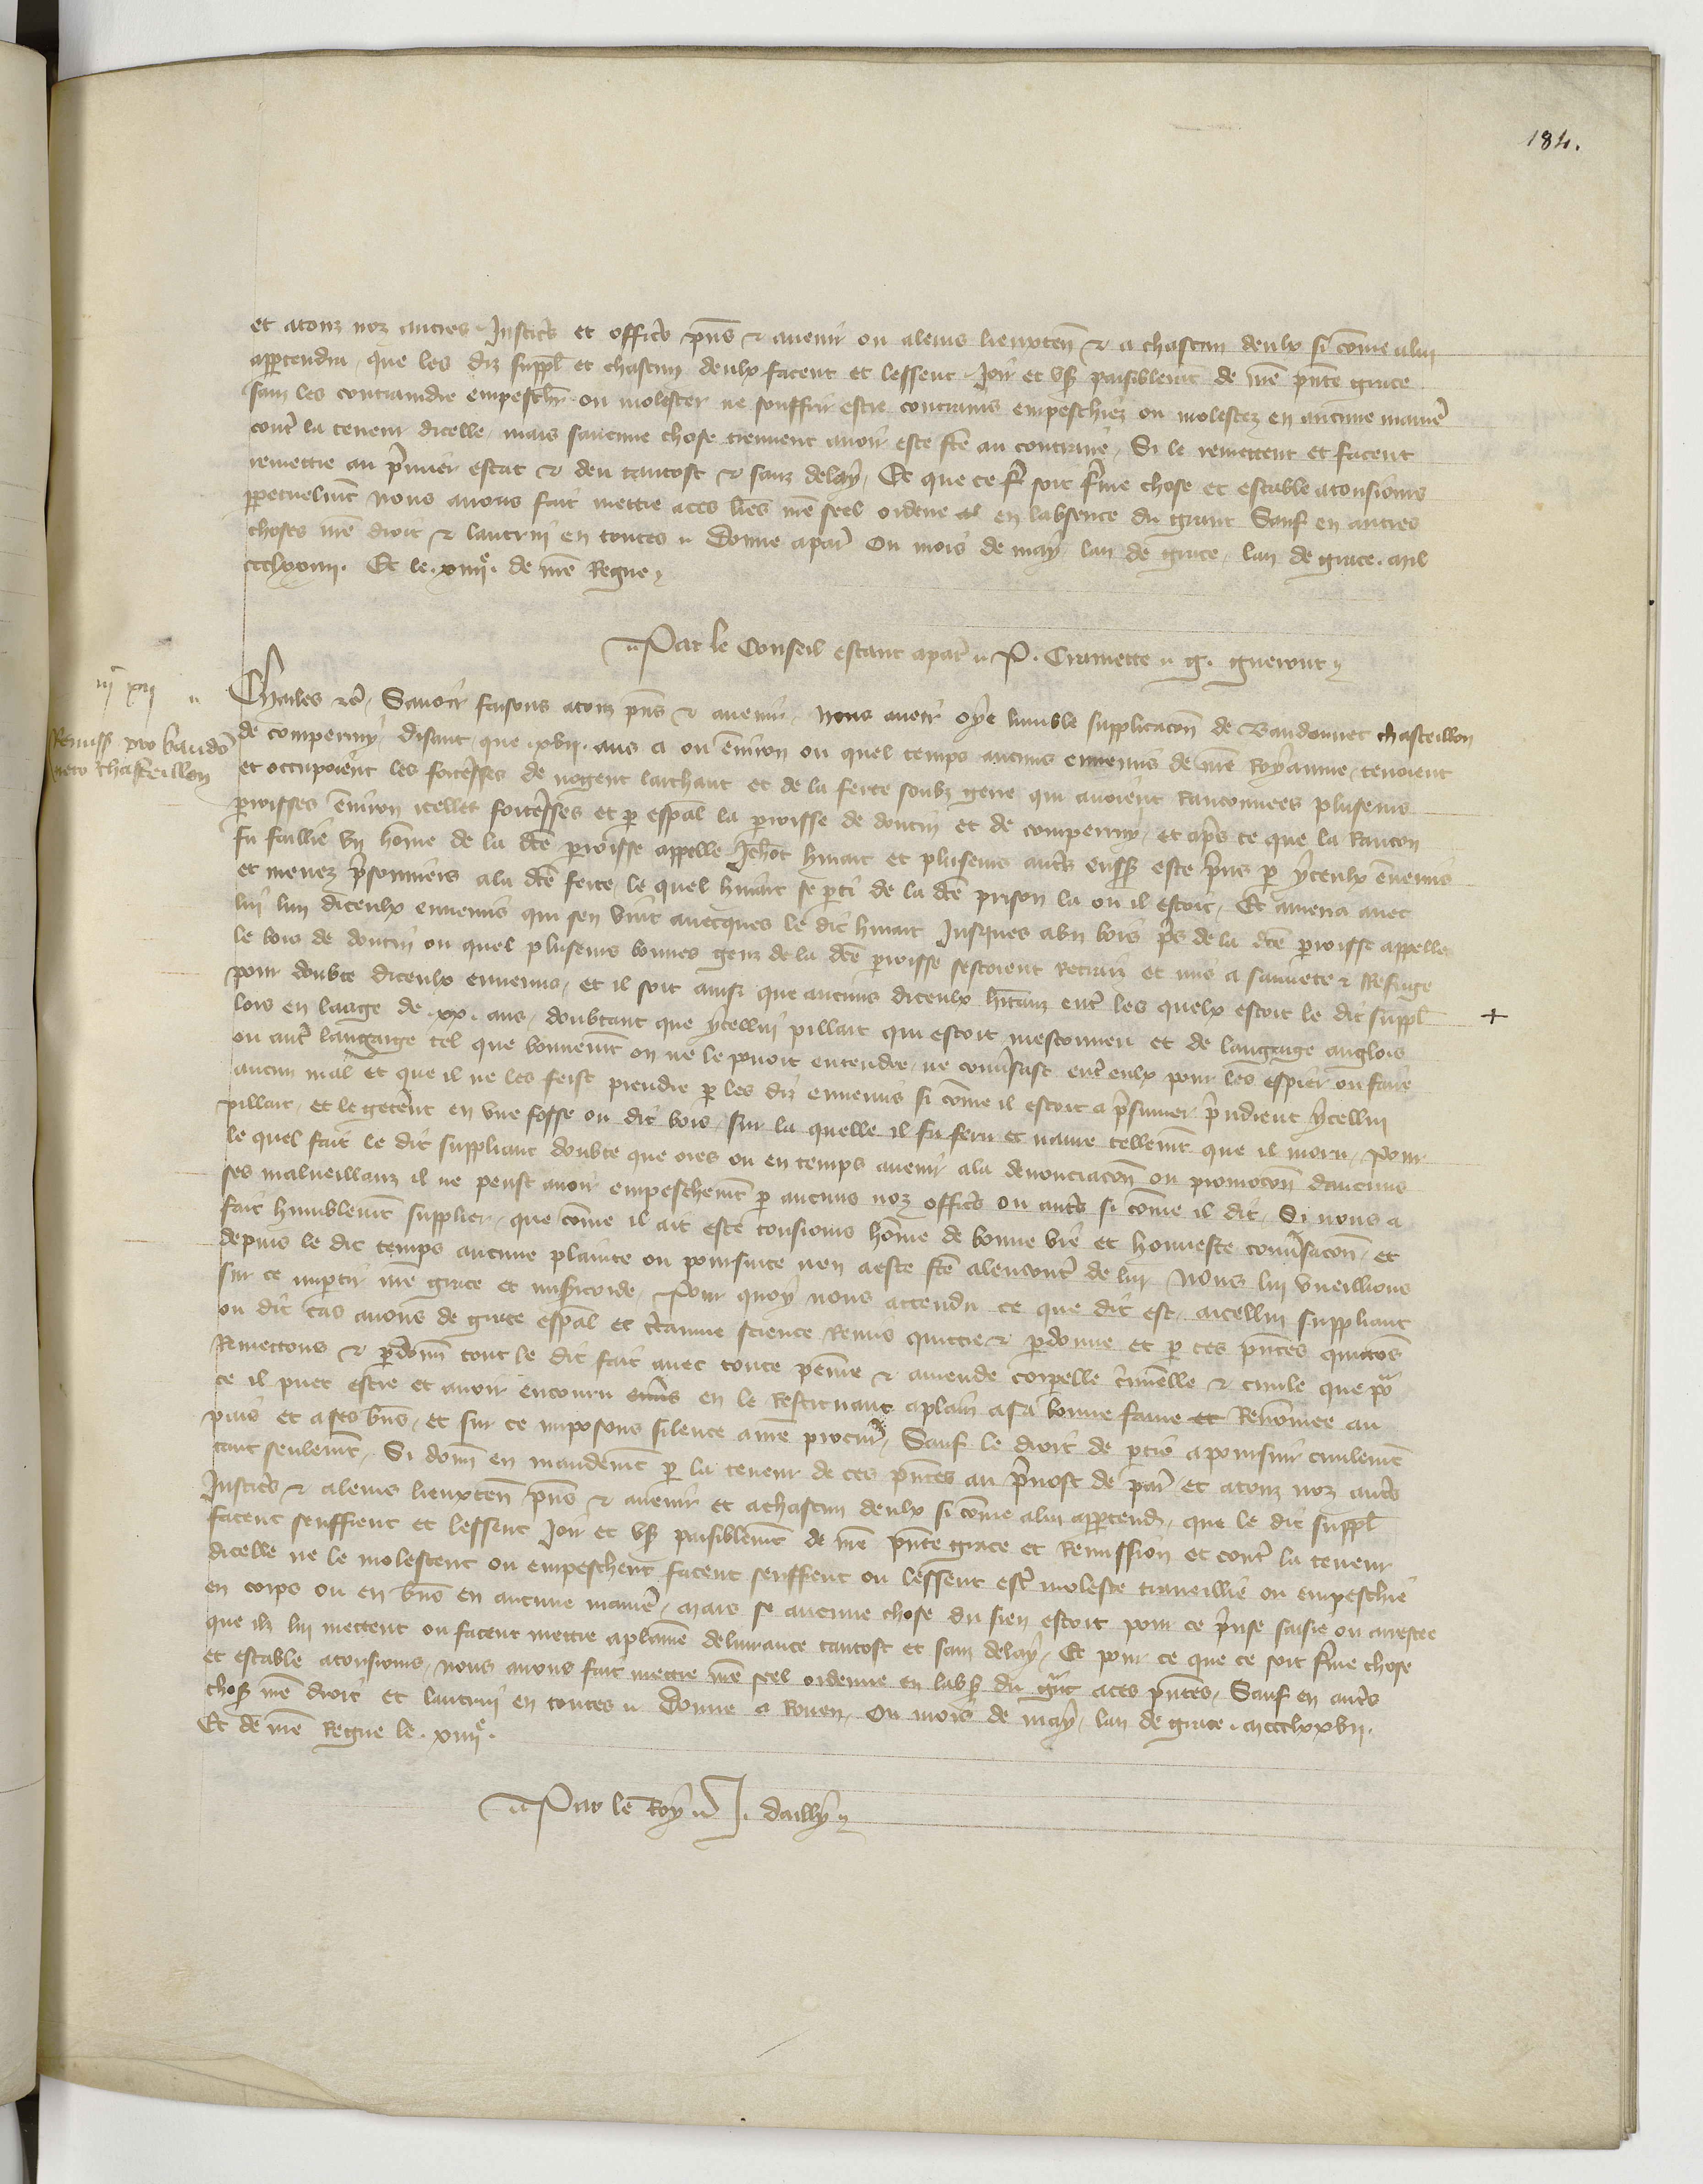 184.
et atouz noz autres Justic̃s et offic̃s p̃ns & avenir ou aleurs lieuxten̄ & a chascun deulx si cõme alui
appertendra, que les diz suppl̃ et chascun deulx facent et lessent Joir et us̃ paisiblemt̃ de nr̃e p̃nte grace
sanz les contraindre empesch̃r ou molester ne souffrir estre contrains empeschiez ou molestez en aucune manie᷑
cont᷑ la teneur dicelle, mais saucune chose treuvent avoir este fc̃e au contraire, Si le remettent et facent
remettre au p᷑mier estat & deu tantost & sanz delay, Et que ce f᷑ soit f᷑me chose et estable atousiours
perpetuelmt̃ nous avons fait mettre aces lr̃es nr̃e seel ordene al en labsence du grant Sauf en autres
choses nr̃e droit & lautrui en toutes Donne apar᷑ Ou mois de may lan de grace, lan de grace. mil
ccclxxvii. Et le. xiiii᷑e. de nr̃e Regne
Par le Conseil estant apar᷑ P. Cramette g. gueront
iij xii
Remiss pro baudo
neto chasteillon
Charles et᷑c, Savoir faisons atouz p̃ns & avenir, Nous avoir oye lumble supplicacõn de Baudonnet chasteillon
de comperiny, disant, que .xvii. ans a ou ẽviron ou quel temps aucuns ennemis de nr̃e Royaume, tenoient
et occupoient les fort᷑esses de nogent larthaut et de la ferte soubz gerre qui avoient Ranconnees pluseurs
p᷑roisses ẽviron icelles fort᷑esses et p esp̃al la p᷑roisse de doutin et de comperiny, et ap᷑s ce que la Rancon
fu faillie un hõme de la dc̃e p᷑roisse appelle Jeh̃ot huart et pluseurs aut᷑s euss̃ este p᷑ns p yceulx ẽnemis
et menez p᷑sonniers ala dc̃e ferte, le quel huart se p᷑ti de la dc̃e prison la ou il estoit, Et amena avec
lui lun diceulx ennemis qui sen vint avecques le dit huart Jusques aun bois p᷑s de la dc̃e p᷑roisse appelle
le bois de doutin ou quel pluseurs bonnes genz de la dc̃e p᷑roisse sestoient Retraiz et mis a sauvete & Refuge
pour doubte diceulx ennemis, et il soit ainsi que aucuns diceulx h̃itanz ent᷑ les quelx estoit le dit suppl̃ +
lors en laage de .xx. ans, doubtant que ycellui pillart qui estoit mescongneu et de langaige anglois
ou aut᷑ langaige tel que bonnemt̃ on ne le povoit entendre, ne conv᷑sast ent᷑ eulx pour les espier ou faire
aucun mal et que il ne les feist prendre p les diz ennemis si cõme il estoit a p᷑sumer p᷑ndient ycellui
pillart, et le get᷑ent en une fosse ou dit bois, sur la quelle il fu feru et navre tellemt̃ que il moru, Pour
le quel fait le dit suppliant doubte que ores ou en temps avenir ala denonciacõn ou promocõn daucuns
ses malveillanz il ne peust avoir empeschemt̃ p aucuns noz offic̃s ou aut᷑s si cõme il dit, Si nous a
fait humblemt̃ supplier, que cõme il ait este tousiours hõme de bonne vie et honneste conv᷑sacõn, et
depuis le dit temps aucune plainte ou poursuite nen aeste fc̃e alencont᷑ de lui Nous lui vueillions
sur ce imp᷑tir nr̃e grace et mis᷑icorde, Pour quoy nous attendu ce que dit est, aicellui suppliant
ou dit cas avons de grace esp̃al et c᷑taine science Remis quittie & p᷑donne et p ces p̃ntes quittõs
Remettons & p᷑donn̄ tout le dit fait avec toute peine & amende corpelle c᷑iminelle & civile que po᷑
ce il puet estre et avoir encouru env᷑s en le Restituant aplain asa bonne fame et Renõmee au
pais et ases b̃ns, et sur ce imposons silence a nr̃e procur᷑, Sauf le droit de p᷑tie apoursuir civilemt̃
tant seulemt̃, Si donn̄ en mandemt̃ p la teneur de ces p̃ntes au p᷑vost de par᷑ et atouz noz aut᷑s
Justic̃s & aleurs lieuxten̄ p̃ns & avenir et achascun deulx si cõme alui appertend᷑, que le dit suppl̃
facent seuffrent et lessent Joir et us̃ paisiblemt̃ de nr̃e p̃nte grace et Remission et cont᷑ la teneur
dicelle ne le molestent ou empeschent facent seuffrent ou lessent est᷑ moleste travaillie ou empeschie
en corps ou en b̃ns en aucune manie᷑, mais se aucune chose du sien estoit pour ce p᷑nse saisie ou arrestee
que ilz lui mettent ou facent mettre aplaine delivrance tantost et sanz delay, Et pour ce que ce soit f᷑me chose
et estable atousiours, nous avons fait mettre nr̃e seel ordenne en labs̃ du g᷑nt aces p̃ntes, Sauf en aut᷑s
chos̃ nr̃e droit et lautrui en toutes Donne a Rouen, Ou mois de may, lan de grace. mccclxxvii.
Et de nr̃e Regne le. xiiii᷑e.
Par le Roy J. dailly